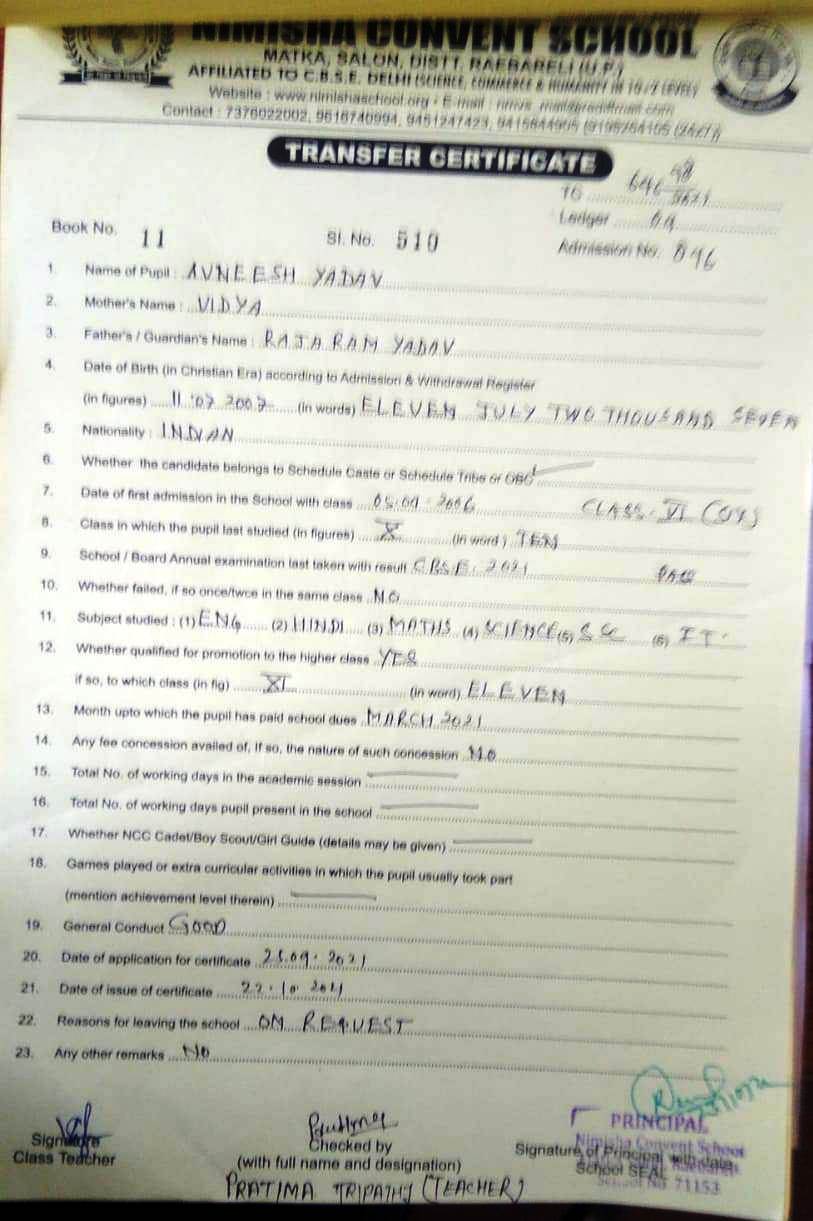 NIMISHA CONVENT SCHOOL
MATKA, SALON, DISTT. RAEBARELI (U.P.)
AFFILIATED TO C.B.S.E. DELHI (SCIENCE, COMMERCE & HUMANITY IN 10+2 LEVEL)
Website : www.nimishaschool.org - E-mail :
Contact : 7376022002, 9616740994, 9451247423,
TRANSFER CERTIFICATE
TC 646
Ledger
Book No. 11 Sl. No. 510 Admission No. 846
1. Name of Pupil : AVNEESH YADAV
2. Mother's Name : VIDYA
3. Father's / Guardian's Name : RAJA RAM YADAV
4. Date of Birth (in Christian Era) according to Admission & Withdrawal Register
(in figures) 11.07.2007 (in words) ELEVEN JULY TWO THOUSAND SEVEN
5. Nationality : INDIAN
6. Whether the candidate belongs to Schedule Caste or Schedule Tribe or OBC
7. Date of first admission in the School with class CLASS - VI
8. Class in which the pupil last studied (in figures) X (in word) TEN
9. School / Board Annual examination last taken with result CBSE. 2021
10. Whether failed, if so once/twce in the same class NO
11. Subject studied : (1) ENG (2) HINDI (3) MATHS (4) SCIENCE (5) S.SC (6) I T.
12. Whether qualified for promotion to the higher class YES
if so, to which class (in fig) XI (in word) ELEVEN
13. Month upto which the pupil has paid school dues MARCH 2021
14. Any fee concession availed of, if so, the nature of such concession NO
15. Total No. of working days in the academic session
16. Total No. of working days pupil present in the school
17. Whether NCC Cadet/Boy Scout/Girl Guide (details may be given)
18. Games played or extra curricular activities in which the pupil usually took part
(mention achievement level therein)
19. General Conduct GOOD
20. Date of application for certificate 25.09.2021
21. Date of issue of certificate 22.10.2021
22. Reasons for leaving the school ON REQUEST
23. Any other remarks NO
Signature
Class Teacher
Checked by
(with full name and designation)
PRATIMA TRIPATHI (TEACHER)
PRINCIPAL
Nimisha Convent School
Signature of Principal with date
School SEAL
School No 71153